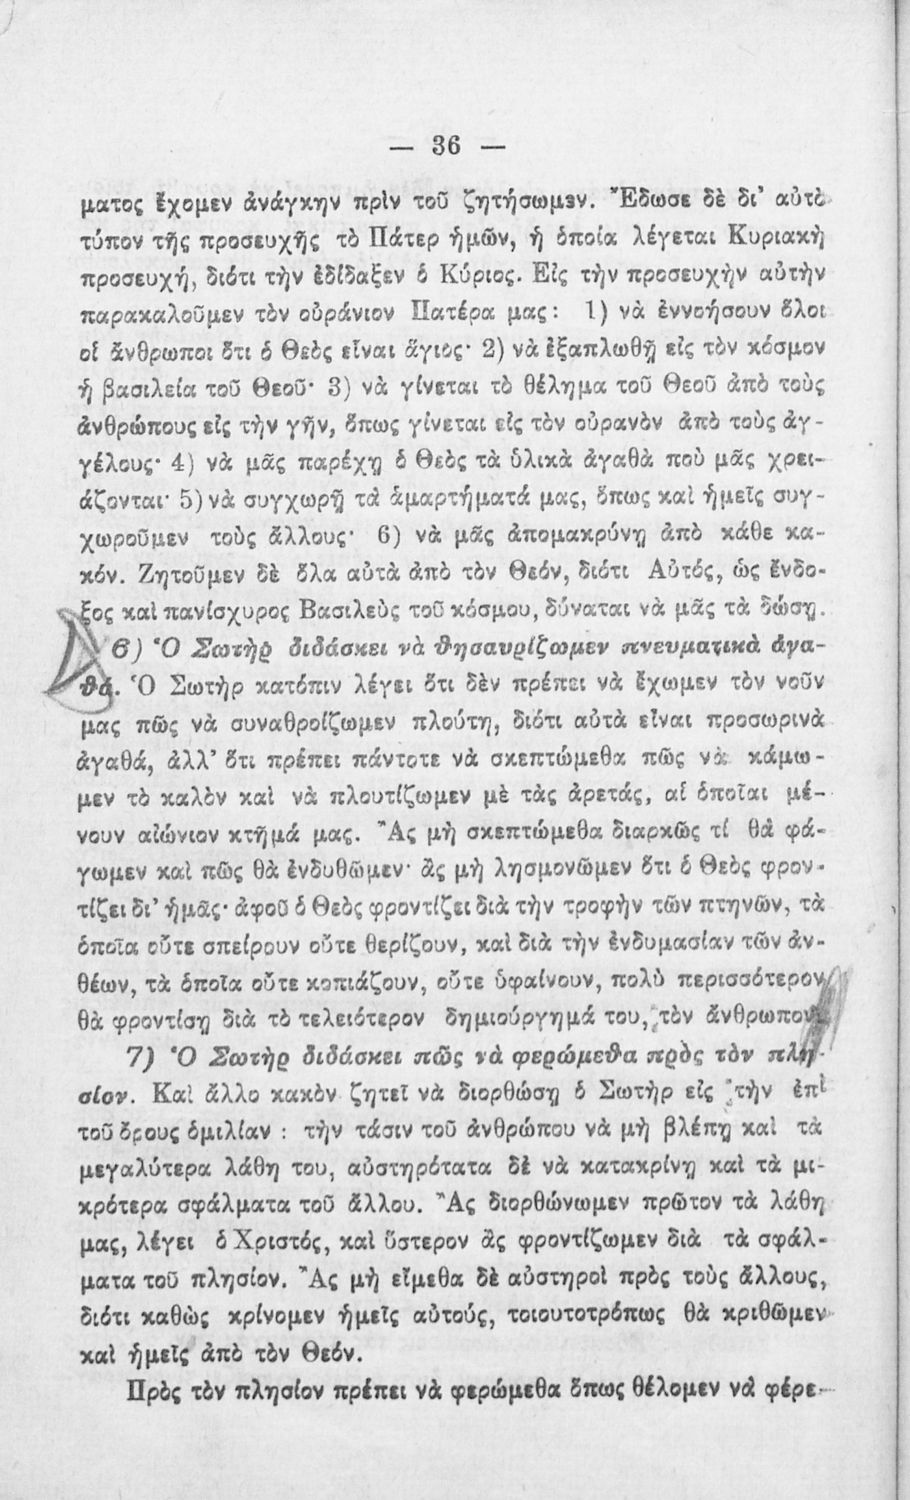 — 36 —
ματος ἔχομεν ἀνάγκην πρὶν τοῦ ζητήσωμεν. Ἔδωσε δὲ δι’ αὐτὸ
τύπον τῆς προσευχῆς τὸ Πάτερ ἡμῶν, ἡ ὁποία λέγεται Κυριακὴ
προσευχή, διότι τὴν ἐδίδαξεν ὁ Κύριος. Εἰς τὴν προσευχὴν αὐτὴν
παρακαλοῦμεν τὸν οὐράνιον Πατέρα μας: 1) νὰ ἐννοήσουν ὅλοι
οἱ ἄνθρωποι ὅτι ὁ Θεὸς εἶναι ἅγιος· 2) νὰ ἐξαπλωθῇ εἰς τὸν κόσμον
ἡ βασιλεία τοῦ Θεοῦ· 3) νὰ γίνεται τὸ θέλημα τοῦ Θεοῦ ἀπὸ τοὺς
ἀνθρώπους εἰς τὴν γῆν, ὅπως γίνεται εἰς τὸν οὐρανὸν ἀπὸ τοὺς ἀγ-
γέλους· 4) νὰ μᾶς παρέχῃ ὁ Θεὸς τὰ ὑλικὰ ἀγαθὰ ποὺ μᾶς χρει-
άζονται· 5) νὰ συγχωρῇ τὰ ἁμαρτήματά μας, ὅπως καὶ ἡμεῖς συγ-
χωροῦμεν τοὺς ἄλλους· 6) νὰ μᾶς ἀπομακρύνῃ ἀπὸ κάθε κα-
κόν. Ζητοῦμεν δὲ ὅλα αὐτὰ ἀπὸ τὸν Θεόν, διότι Αὐτός, ὡς ἔνδο-
ξος καὶ πανίσχυρος Βασιλεὺς τοῦ κόσμου, δύναται νὰ μᾶς τὰ δώσῃ.
6) Ὁ Σωτὴρ διδάσκει νὰ θησαυρίζωμεν πνευματικὰ ἀγα-
θά. Ὁ Σωτὴρ κατόπιν λέγει ὅτι δὲν πρέπει νὰ ἔχωμεν τὸν νοῦν
μας πῶς νὰ συναθροίζωμεν πλούτη, διότι αὐτὰ εἶναι προσωρινὰ
ἀγαθά, ἀλλ’ ὅτι πρέπει πάντοτε νὰ σκεπτώμεθα πῶς νὰ κάμω-
μεν τὸ καλὸν καὶ νὰ πλουτίζωμεν μὲ τὰς ἀρετάς, αἱ ὁποῖαι μέ-
νουν αἰώνιον κτῆμά μας. Ἂς μὴ σκεπτώμεθα διαρκῶς τί θὰ φά-
γωμεν καὶ πῶς θὰ ἐνδυθῶμεν· ἂς μὴ λησμονῶμεν ὅτι ὁ Θεὸς φρον-
τίζει δι’ ἡμᾶς· ἀφοῦ ὁ Θεὸς φροντίζει διὰ τὴν τροφὴν τῶν πτηνῶν, τὰ
ὁποῖα οὔτε σπείρουν οὔτε θερίζουν, καὶ διὰ τὴν ἐνδυμασίαν τῶν ἀν-
θέων, τὰ ὁποῖα οὔτε κοπιάζουν, οὔτε ὑφαίνουν, πολὺ περισσότερον
θὰ φροντίσῃ διὰ τὸ τελειότερον δημιούργημά του, τὸν ἄνθρωπον.
7) Ὁ Σωτὴρ διδάσκει πῶς νὰ φερώμεθα πρὸς τὸν πλη-
σίον. Καὶ ἄλλο κακὸν ζητεῖ νὰ διορθώσῃ ὁ Σωτὴρ εἰς τὴν ἐπὶ
τοῦ ὄρους ὁμιλίαν : τὴν τάσιν τοῦ ἀνθρώπου νὰ μὴ βλέπῃ καὶ τὰ
μεγαλύτερα λάθη του, αὐστηρότατα δὲ νὰ κατακρίνῃ καὶ τὰ μι-
κρότερα σφάλματα τοῦ ἄλλου. Ἂς διορθώνωμεν πρῶτον τὰ λάθη
μας, λέγει ὁ Χριστός, καὶ ὕστερον ἂς φροντίζωμεν διὰ τὰ σφάλ-
ματα τοῦ πλησίον. Ἂς μὴ εἴμεθα δὲ αὐστηροὶ πρὸς τοὺς ἄλλους,
διότι καθὼς κρίνομεν ἡμεῖς αὐτούς, τοιουτοτρόπως θὰ κριθῶμεν
καὶ ἡμεῖς ἀπὸ τὸν Θεόν.
Πρὸς τὸν πλησίον πρέπει νὰ φερώμεθα ὅπως θέλομεν νὰ φέρε-